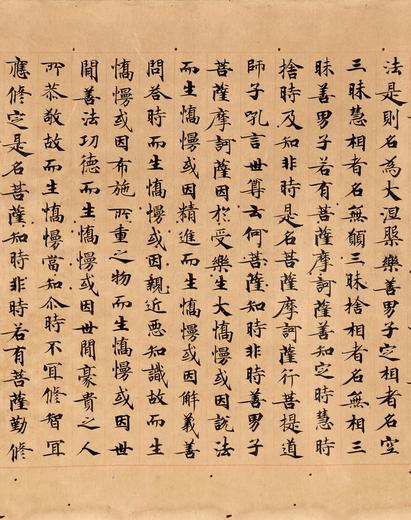 法是則名為大涅槃樂善男子定相者名空
三昧慧相者名無願三昧捨相者名無相三
昧善男子若有菩薩摩訶薩善知定時慧時
捨時及知非時是名菩薩摩訶薩行菩提道
師子吼言世尊云何菩薩知時非時善男子
菩薩摩訶薩因於受樂生大憍慢或因說法
而生憍慢或因精進而生憍慢或因解義善
問荅時而生憍慢或因親近惡知識故而生
憍慢或因布施所重之物而生憍慢或因世
間善法功德而生憍慢或因世間豪貴之人
所恭敬故而生憍慢當知尒時不宜修智宜
應修定是名菩薩知時非時若有菩薩勤修